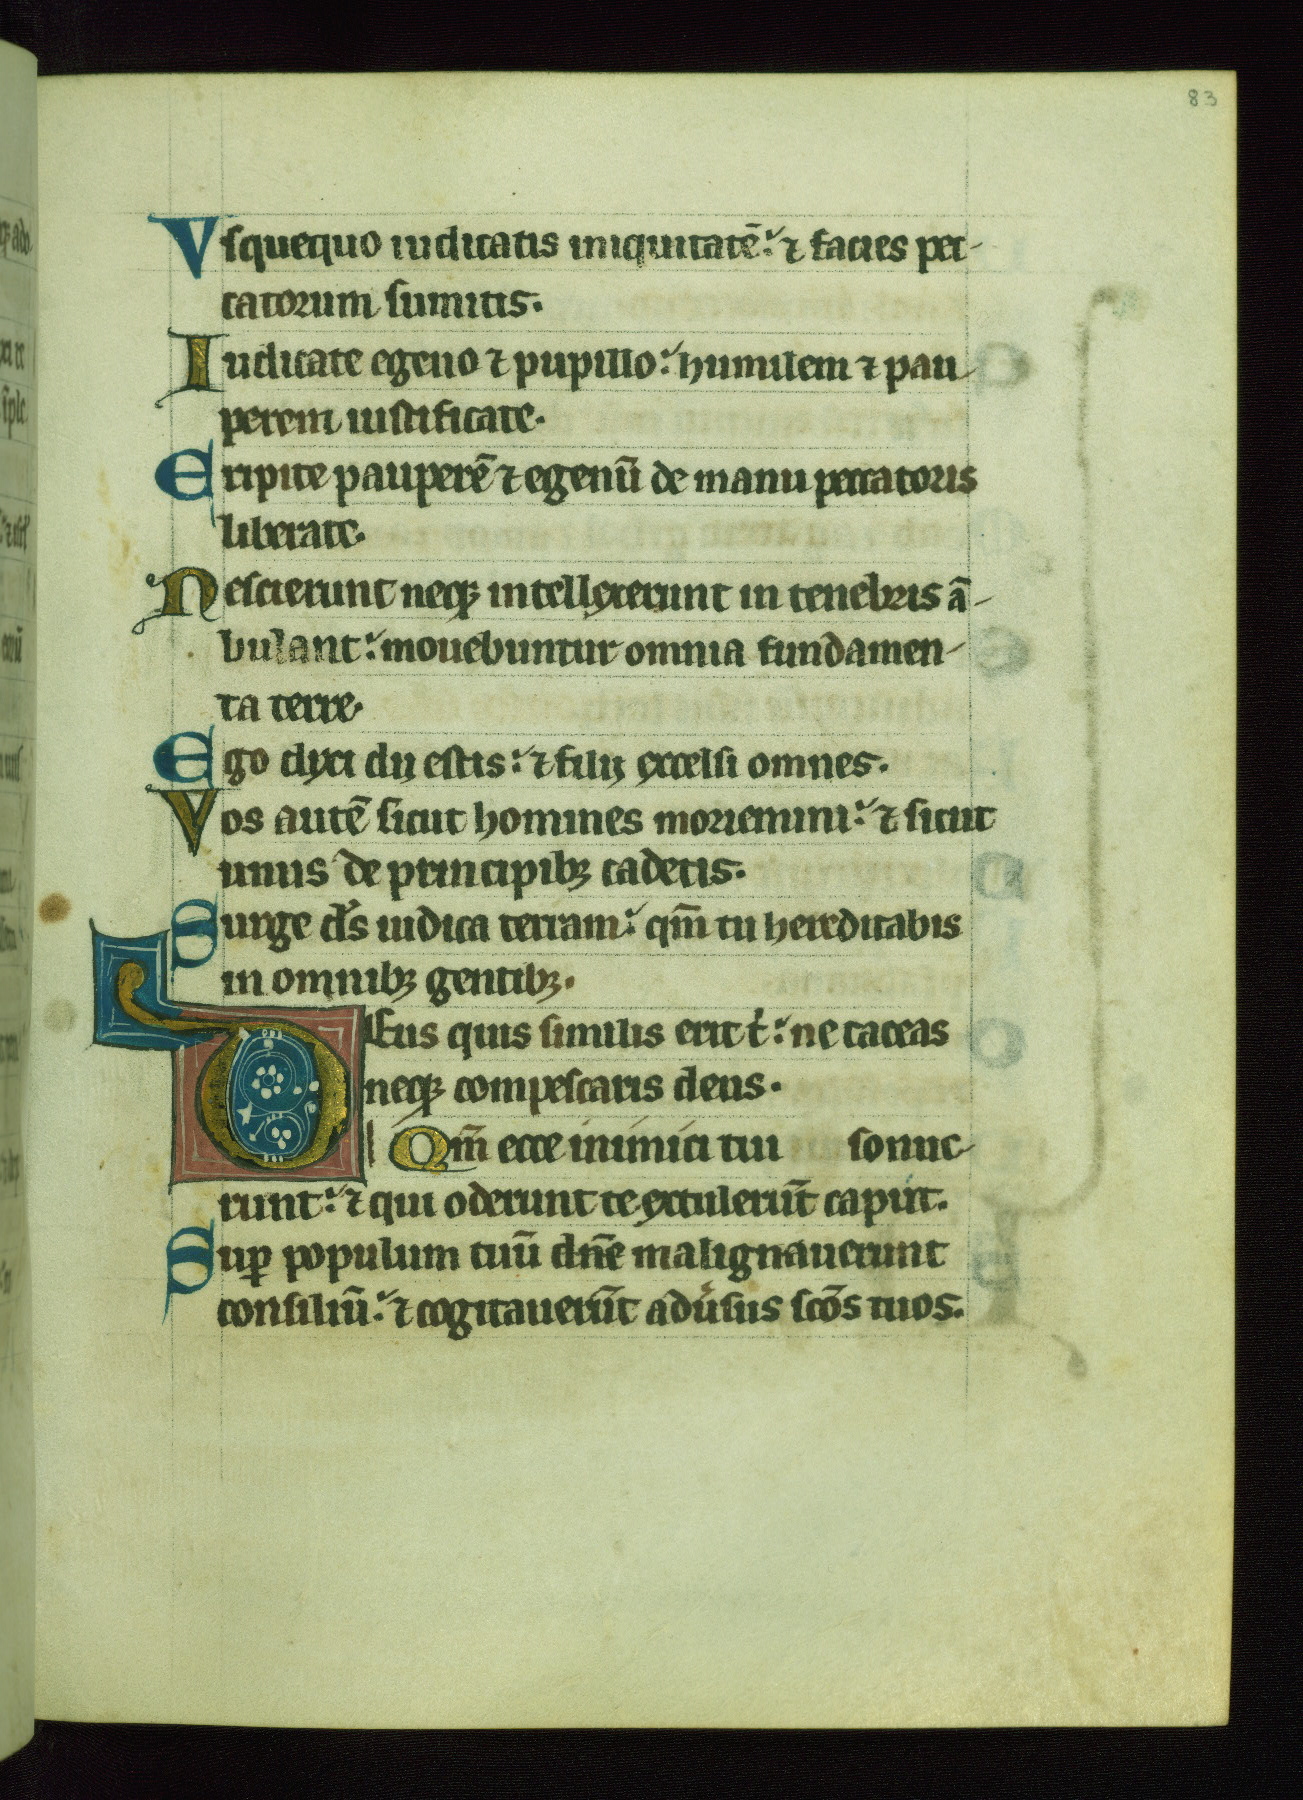 83
Vsquequo iudicatis iniquitatē: ⁊ facies pec-
catorum sumitis.
Iudicate egeno ⁊ pupillo: humilem ⁊ pau
perem iustificate.
Eripite pauperē ⁊ egenū de manu peccatoris
liberate.
Nescierunt neqꝫ intellexerunt in tenebris ā-
bulant: mouebuntur omnia fundamen-
ta terre.
Ego dyxi dij estis: ⁊ filij excelsi omnes.
Vos autē sicut homines moriemini: ⁊ sicut
unus de principibꝫ cadetis.
Surge ds̄ iudica terram: qm̄ tu hereditabis
in omnibꝫ gentibꝫ.
DEus quis similis erit t̄: ne taceas
neqꝫ compescaris deus.
Qm̄ ecce inimici tui sonue-
runt: ⁊ qui oderunt te extulerūt caput.
Suꝑ populum tuū dn̄e malignauerunt
consiliū: ⁊ cogitauerūt adūsus scōs tuos.